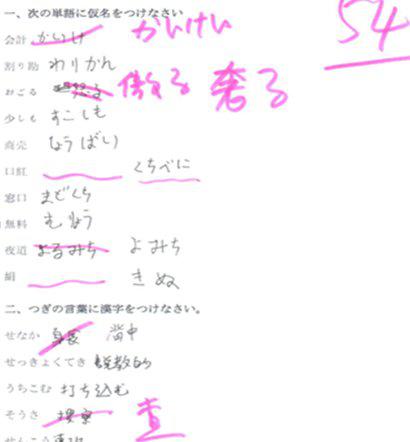 一、次の単語に仮名をつけなさい
54
会計 かいけ かいけい
割り勘 わりかん
おごる 傲る 奢る
少しも すこしも
商売 なうばい
口紅 くちべに
窓口 まどぐち
無料 むりょう
夜道 よるみち よみち
絹 きぬ
二、つぎの言葉に漢字をつけなさい。
せなか 背中
せっきょくてき 説教的
うちこむ 打ち込む
そうさ 捜察 査
せんこう